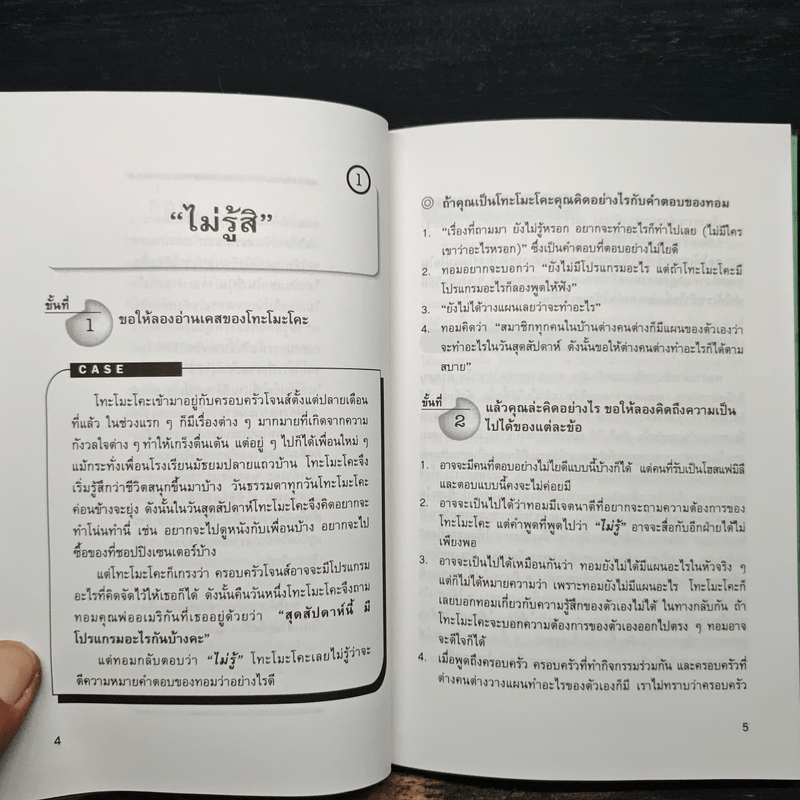 1
“ไม่รู้สิ”
ขั้นที่
1
ขอให้ลองอ่านเคสของโทะโมะโคะ
CASE
โทะโมะโคะเข้ามาอยู่กับครอบครัวโจนส์ตั้งแต่ปลายเดือน
ที่แล้ว ในช่วงแรก ๆ ก็มีเรื่องต่าง ๆ มากมายที่เกิดจากความ
กังวลใจต่าง ๆ ทำให้เกร็งตื่นเต้น แต่อยู่ ๆ ไปก็ได้เพื่อนใหม่ ๆ
แม้กระทั่งเพื่อนโรงเรียนมัธยมปลายแถวบ้าน โทะโมะโคะจึง
เริ่มรู้สึกว่าชีวิตสนุกขึ้นมาบ้าง วันธรรมดาทุกวันโทะโมะโคะ
ค่อนข้างจะยุ่ง ดังนั้นในวันสุดสัปดาห์โทะโมะโคะจึงคิดอยากจะ
ทำโน่นทำนี่ เช่น อยากจะไปดูหนังกับเพื่อนบ้าง อยากจะไป
ซื้อของที่ชอปปิงเซนเตอร์บ้าง
แต่โทะโมะโคะก็เกรงว่า ครอบครัวโจนส์อาจจะมีโปรแกรม
อะไรที่คิดจัดไว้ให้เธอก็ได้ ดังนั้นคืนวันหนึ่งโทะโมะโคะจึงถาม
ทอมคุณพ่ออเมริกันที่เธออยู่ด้วยว่า “สุดสัปดาห์นี้ มี
โปรแกรมอะไรกันบ้างคะ”
แต่ทอมกลับตอบว่า “ไม่รู้” โทะโมะโคะเลยไม่รู้ว่าจะ
ตีความหมายคำตอบของทอมว่าอย่างไรดี
4
◎ ถ้าคุณเป็นโทะโมะโคะคุณคิดอย่างไรกับคำตอบของทอม
1. “เรื่องที่ถามมา ยังไม่รู้หรอก อยากจะทำอะไรก็ทำไปเลย (ไม่มีใคร
เขาว่าอะไรหรอก)” ซึ่งเป็นคำตอบที่ตอบอย่างไม่ไยดี
2. ทอมอยากจะบอกว่า “ยังไม่มีโปรแกรมอะไร แต่ถ้าโทะโมะโคะมี
โปรแกรมอะไรก็ลองพูดให้ฟัง”
3. “ยังไม่ได้วางแผนเลยว่าจะทำอะไร”
4. ทอมคิดว่า “สมาชิกทุกคนในบ้านต่างคนต่างก็มีแผนของตัวเองว่า
จะทำอะไรในวันสุดสัปดาห์ ดังนั้นขอให้ต่างคนต่างทำอะไรก็ได้ตาม
สบาย”
ขั้นที่
2
แล้วคุณล่ะคิดอย่างไร ขอให้ลองคิดถึงความเป็น
ไปได้ของแต่ละข้อ
1. อาจจะมีคนที่ตอบอย่างไม่ไยดีแบบนี้บ้างก็ได้ แต่คนที่รับเป็นโฮสแฟมิลี
และตอบแบบนี้คงจะไม่ค่อยมี
2. อาจจะเป็นไปได้ว่าทอมมีเจตนาดีที่อยากจะถามความต้องการของ
โทะโมะโคะ แต่คำพูดที่พูดไปว่า “ไม่รู้” อาจจะสื่อกับอีกฝ่ายได้ไม่
เพียงพอ
3. อาจจะเป็นไปได้เหมือนกันว่า ทอมยังไม่ได้มีแผนอะไรในหัวจริง ๆ
แต่ก็ไม่ได้หมายความว่า เพราะทอมยังไม่มีแผนอะไร โทะโมะโคะก็
เลยบอกทอมเกี่ยวกับความรู้สึกของตัวเองไม่ได้ ในทางกลับกัน ถ้า
โทะโมะโคะจะบอกความต้องการของตัวเองออกไปตรง ๆ ทอมอาจ
จะดีใจก็ได้
4. เมื่อพูดถึงครอบครัว ครอบครัวที่ทำกิจกรรมร่วมกัน และครอบครัวที่
ต่างคนต่างวางแผนทำอะไรของตัวเองก็มี เราไม่ทราบว่าครอบครัว
5